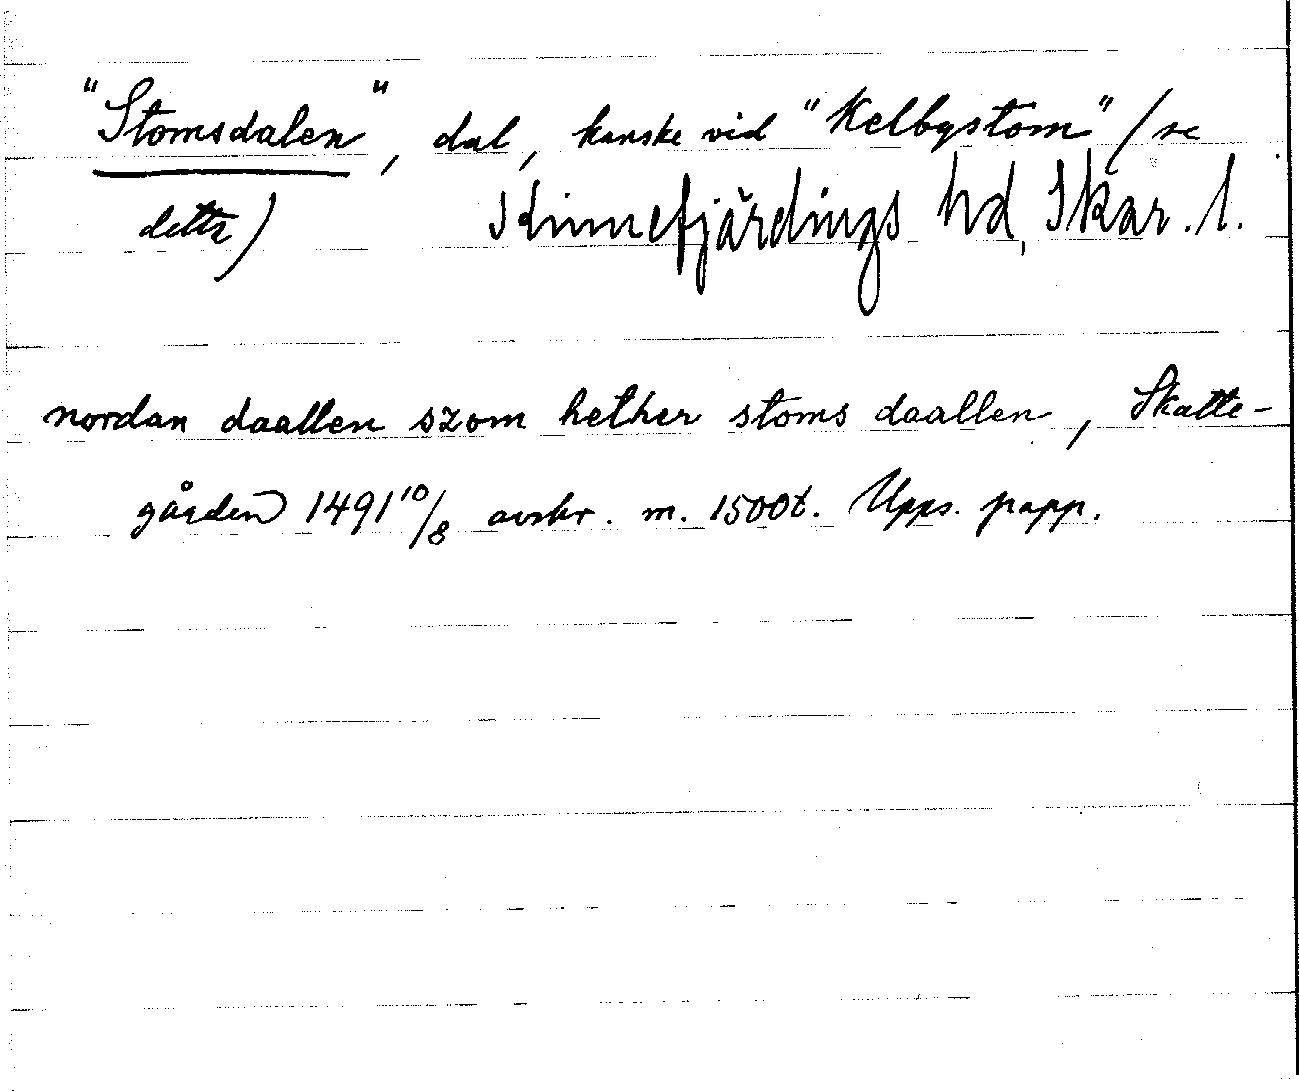 "Stomsdalen", dal, kanske vid "Kelbystom" / se
detta) Kinnefjärdings hd, Skar. l.
nordan daallen szom hether stoms daallen, Skatte-
gården 1491 10/8 avskr. m. 1500t. Upps. papp.